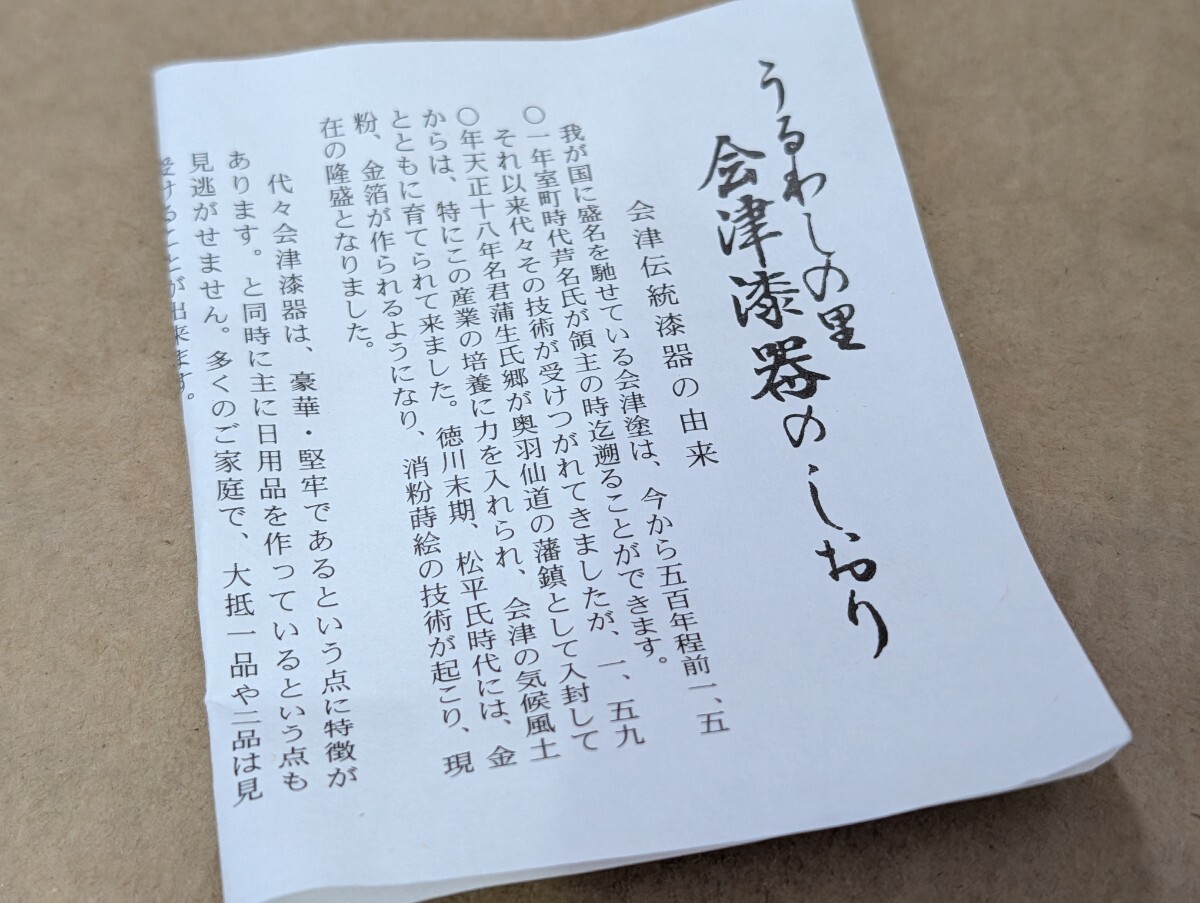 うるわしの里
会津漆器のしおり
会津伝統漆器の由来
我が国に盛名を馳せている会津塗は、今から五百年程前一、五
〇一年室町時代芦名氏が領主の時迄遡ることができます。
それ以来代々その技術が受けつがれてきましたが、一、五九
〇年天正十八年名君蒲生氏郷が奥羽仙道の藩鎮として入封して
からは、特にこの産業の培養に力を入れられ、会津の気候風土
とともに育てられて来ました。徳川末期、松平氏時代には、金
粉、金箔が作られるようになり、消粉蒔絵の技術が起こり、現
在の隆盛となりました。
代々会津漆器は、豪華・堅牢であるという点に特徴が
あります。と同時に主に日用品を作っているという点も
見逃がせません。多くのご家庭で、大抵一品や二品は見
受けることが出来ます。